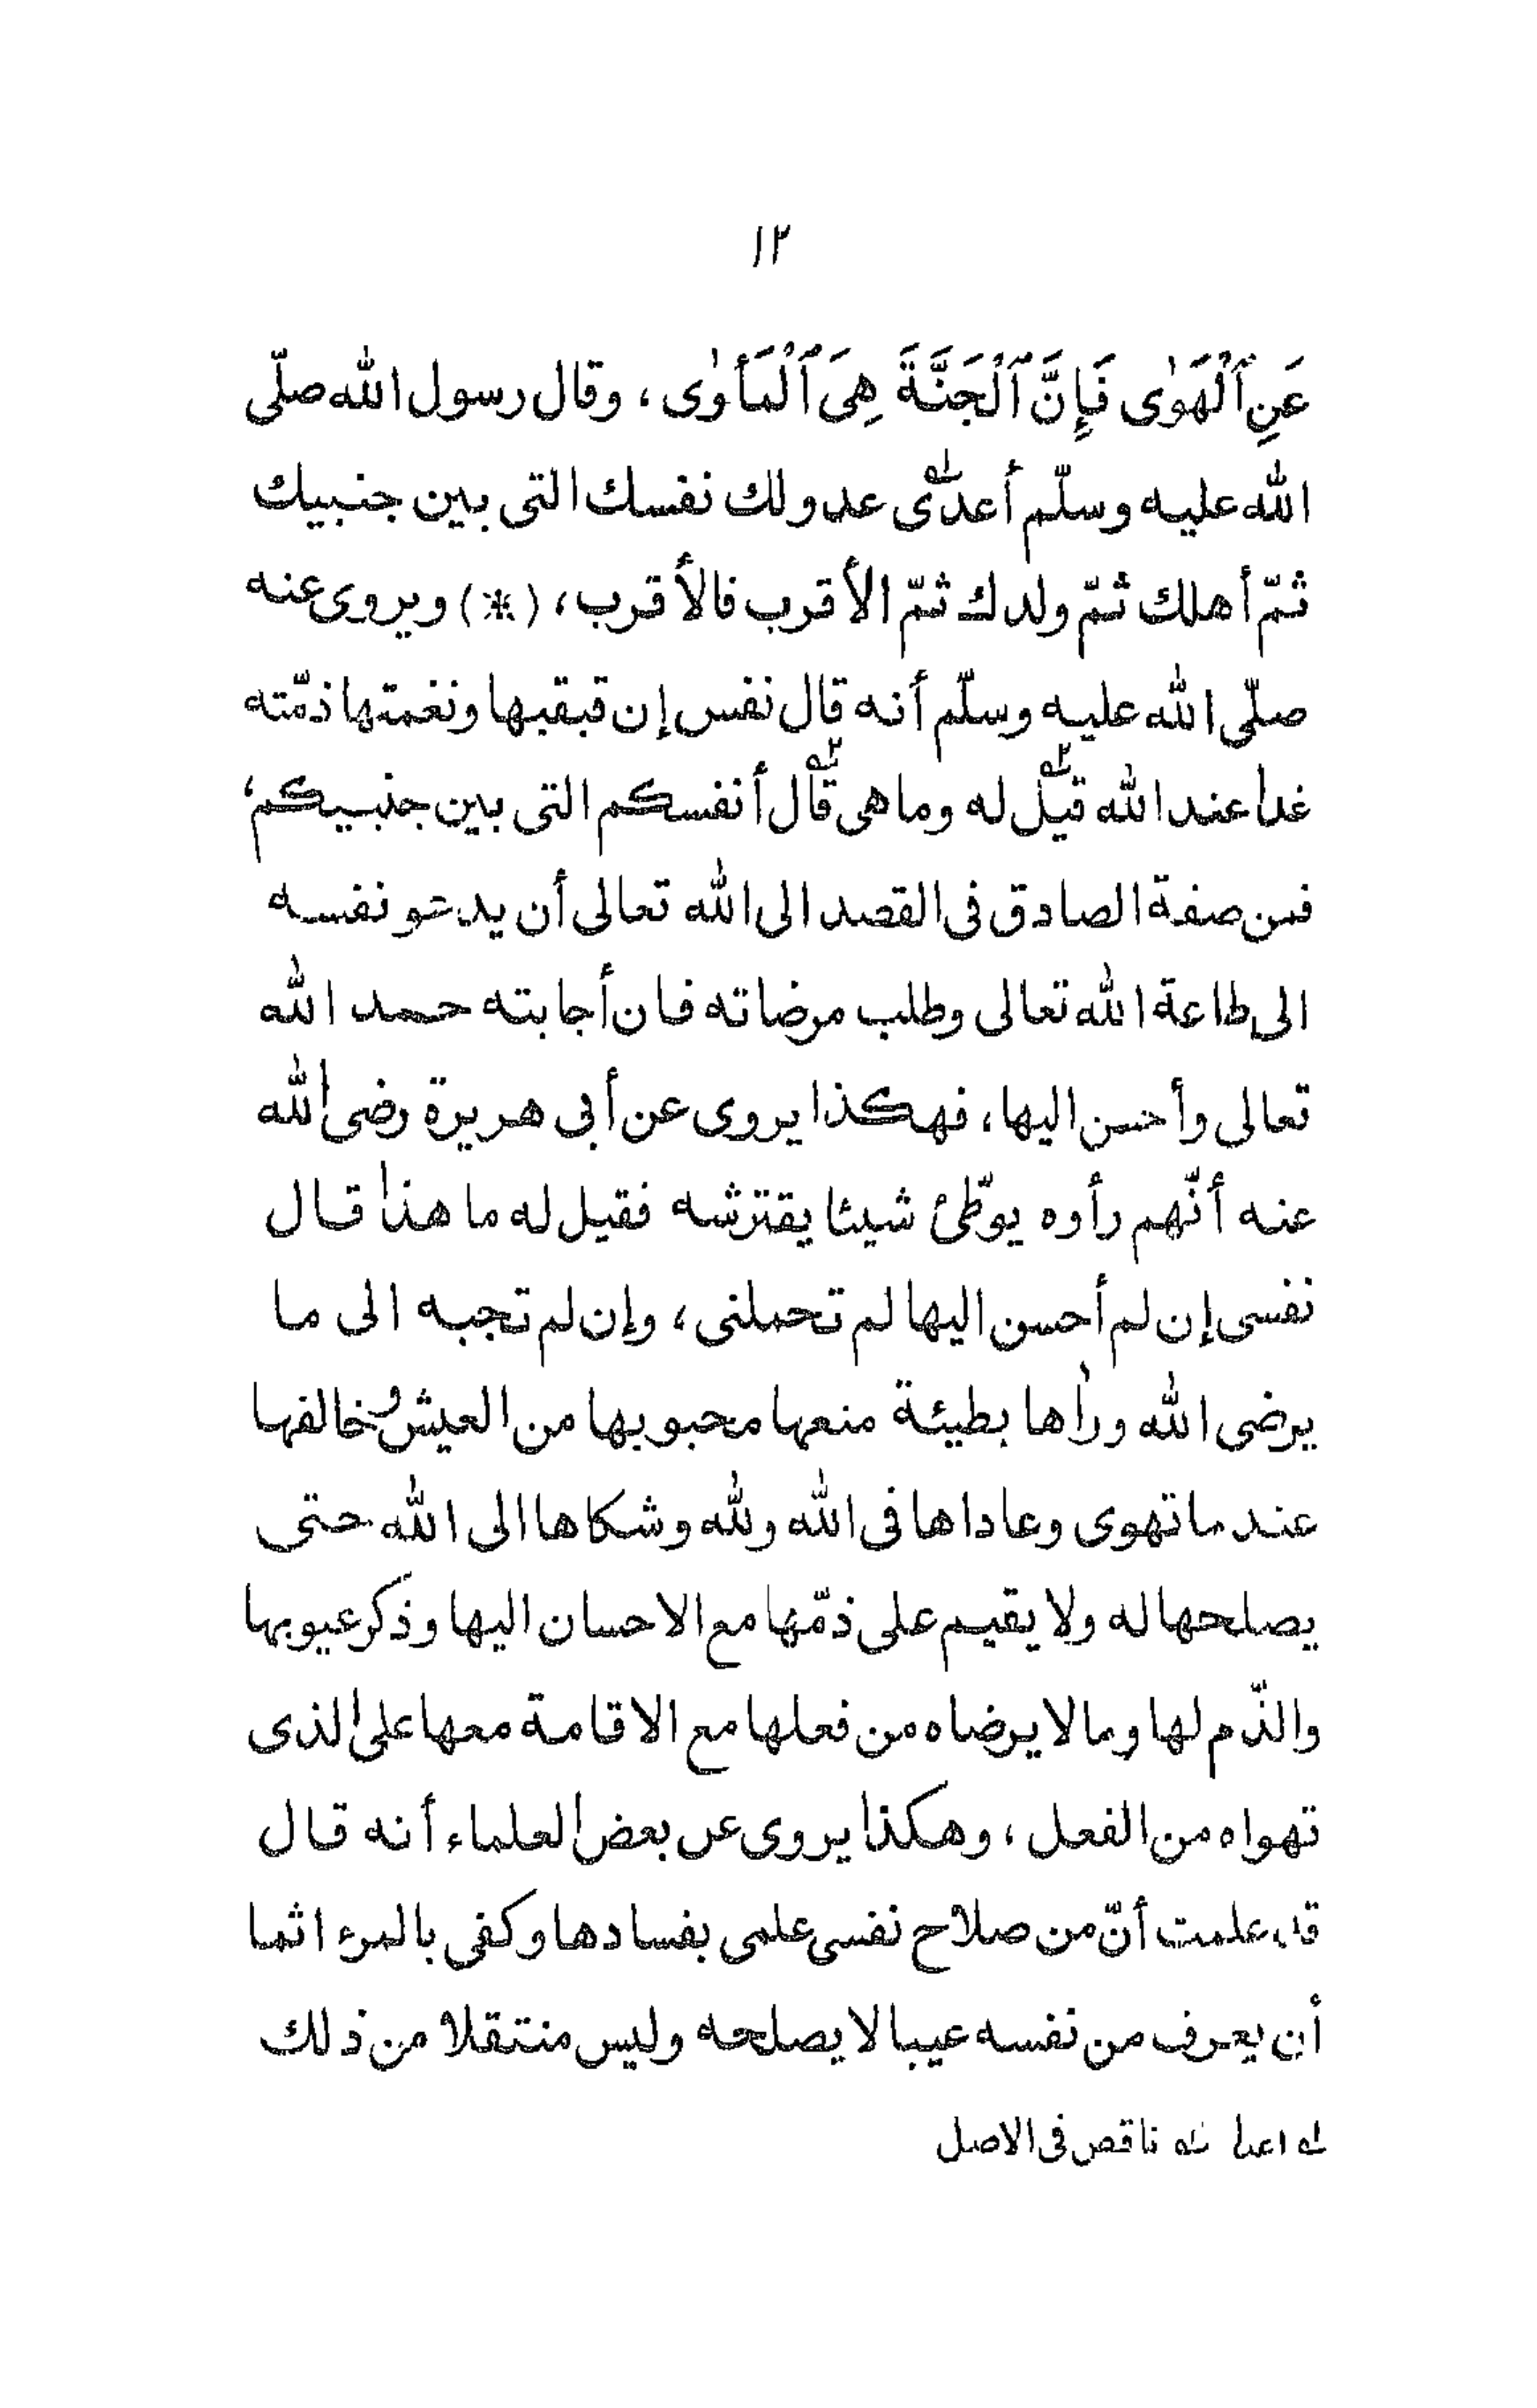 ١٢
عَنِ ٱلْهَوٰى فَإِنَّ ٱلْجَنَّةَ هِىَ ٱلْمَأْوٰى، وقال رسول الله صلّى
الله عليه وسلّم أعدى عدو لك نفسك التى بين جنبيك
ثمّ أهلك ثمّ ولدك ثمّ الأقرب فالأقرب، (*) ويروى عنه
صلّى الله عليه وسلّم أنه قال نفس إن قبقبها ونغمتها ذمّته
غدا عند الله قيل له وما هى قال أنفسكم التى بين جنبيكم،
فمن صفة الصادق فى القصد الى الله تعالى أن يدعو نفسه
الى طاعة الله تعالى وطلب مرضاته فان أجابته حمد الله
تعالى وأحسن اليها، فهكذا يروى عن أبى هريرة رضى الله
عنه أنّهم رأوه يوطّئ شيئا يفترشه فقيل له ما هذا قال
نفسى إن لم أحسن اليها لم تحملنى، وإن لم تجبه الى ما
يرضى الله ورأها بطيئة منعها محبوبها من العيش وخالفها
عند ما تهوى وعاداها فى الله ولله وشكاها الى الله حتى
يصلحها له ولا يقيم على ذمّها مع الاحسان اليها وذكر عيوبها
والذّم لها وما لا يرضاه من فعلها مع الاقامة معها على الذى
تهواه من الفعل، وهكذا يروى عن بعض العلماء أنه قال
قد علمت أنّ من صلاح نفسى علمى بفسادها وكفى بالمرء اثما
أن يعرف من نفسه عيبا لا يصلحه وليس منتقلا من ذلك
له اعدا ٢ه ناقص فى الاصل